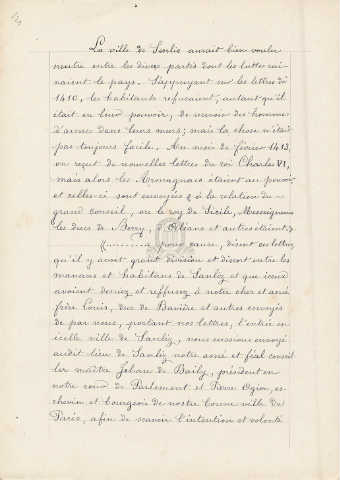 La ville de Senlis aurait bien voulu
neutre entre les deux partis dont les luttes rui-
naient le pays. S'appuyant sur les lettres de
1410, les habitants refusaient, autant qu'il
était en leur pouvoir, de recevoir des hommes
d'armes dans leurs murs; mais la chose n'était
pas toujours facile. Au mois de février 1413,
on reçut de nouvelles lettres du roi Charles VI,
mais alors les Armagnacs étaient au pouvoir
et celles-ci sont envoyées « à la relation du
grand conseil, ou le roy de Sicile, Messeigneurs
les ducs de Berry, d'Orléans et autres étaient. »
« ........ à pour cause, disent ces lettres
qu'il y avoit grant division et discort entre les
manans et habitans de Senlez et que iceux
avoient deniez et reffusez à notre cher et amé
frère Louis, duc de Bavière et autres envoyés
de par nous, portant nos lettres, l'entrée en
icelle ville de Senlez, nous eussions envoyé
audit lieu de Senlis notre amé et féal conseil
ler maître Jehan de Baily, président en
notre cour de Parlement et Pierre Ogier, es-
chevin et bourgeois de nostre bonne ville de
Paris, afin de scavoir l'intention et volonté